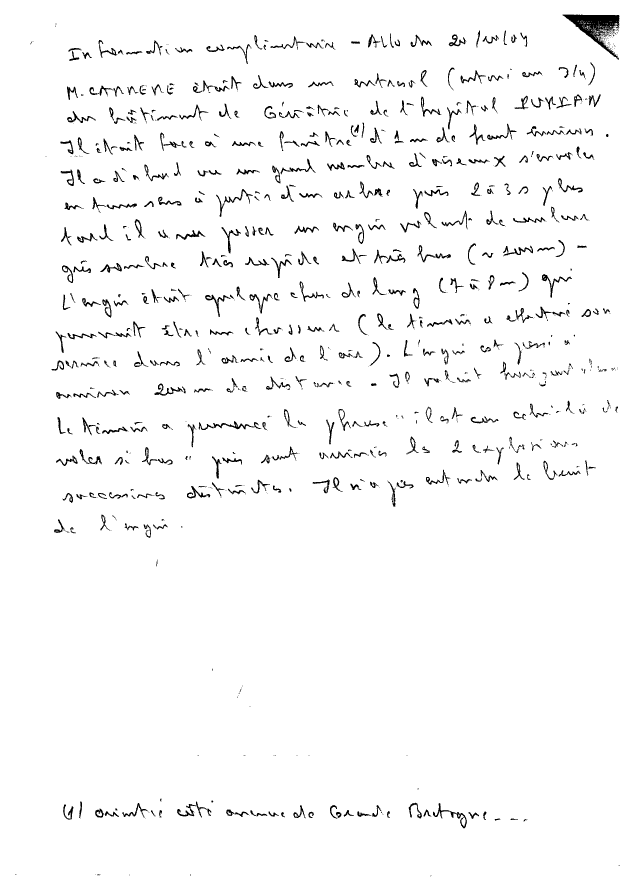 Information complémentaire - Allo du 20/10/04
M. CARRERE était dans un entresol (
du bâtiment de Gériatrie de l'hopital PURPAN
Il était face à une fenêtre (1) d'1 m de haut environ.
Il a d'abord vu un grand nombre d'oiseaux s'envoler
en tous sens à partir d'un arbre puis 2 à 3 s plus
tard il a vu passer un engin volant de couleur
gris sombre très rapide et très bas (~ 100m) -
L'engin était quelque chose de long (7 à 8 m) qui
pourrait être un chasseur (le témoin a effectué son
service dans l'armée de l'air). L'engin est passé à
environ 200 m de distance. Il volait
Le témoin a prononcé la phrase " il est con celui-là de
voler si bas " puis sont arrivées les 2 explosions
successives distinctes. Il n'a pas entendu le bruit
de l'engin.
(1) orientée côté avenue de Grande Bretagne ---